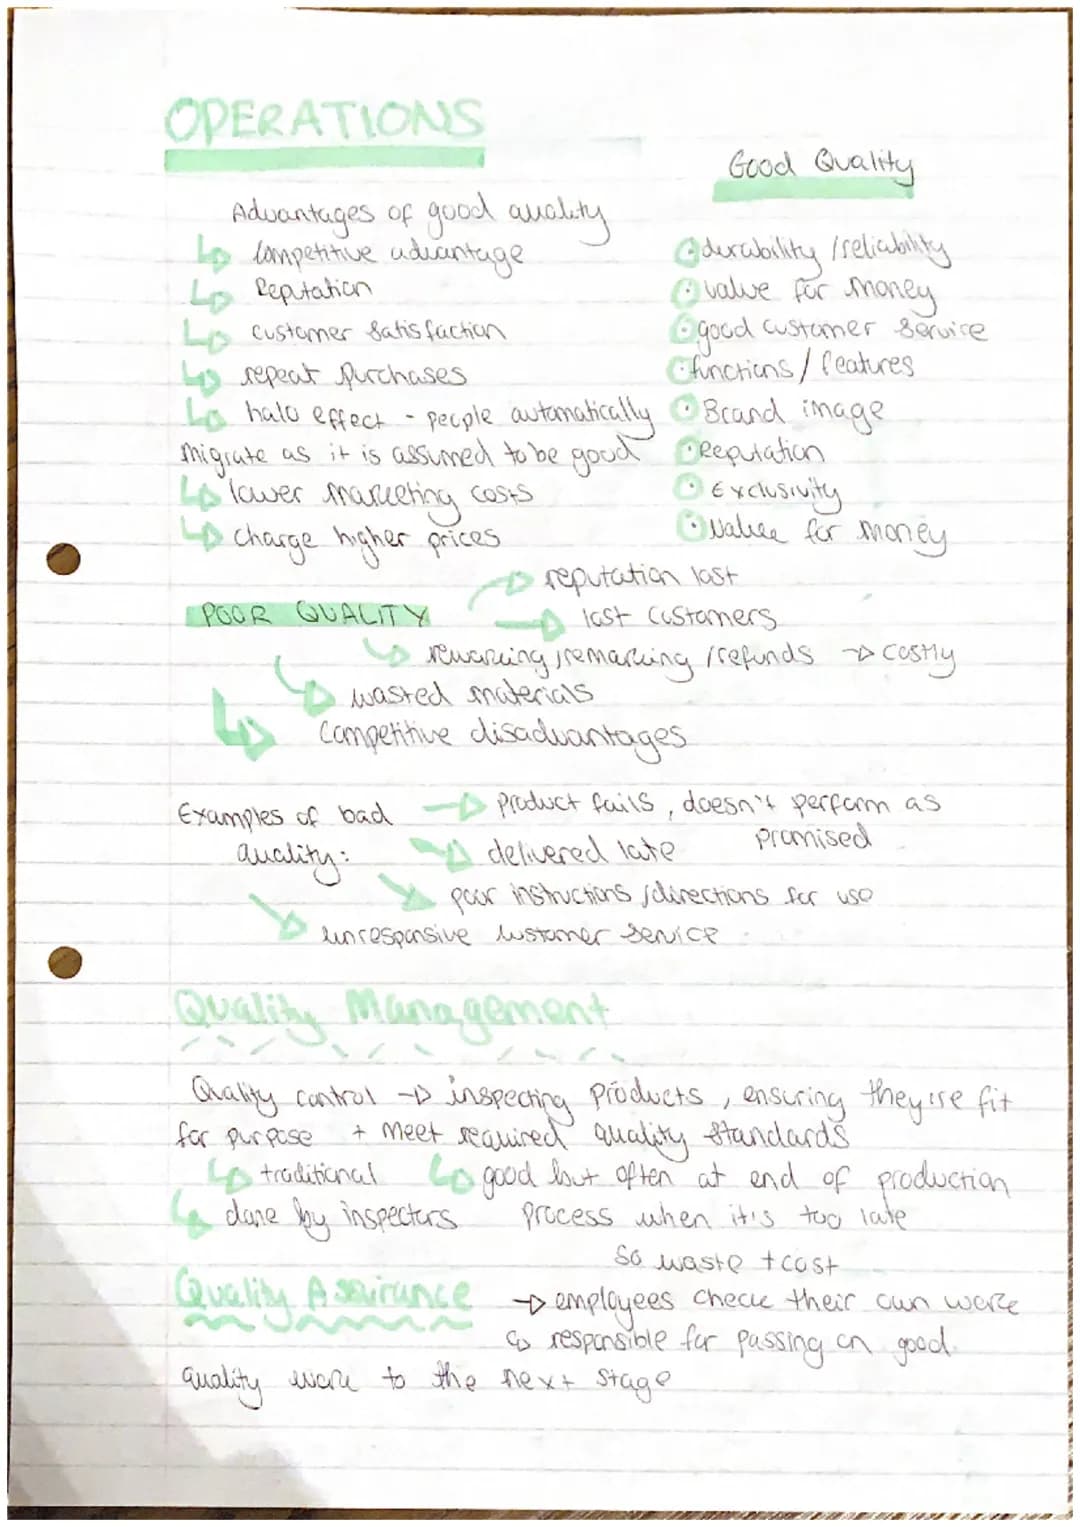 OPERATIONS
Good Quality
Advantages of good quality
competitive advantage
Reputation
customer satisfaction
repeat purchases
halo effect - people automatically
migrate as it is assumed to be good
lower marketing costs
charge higher prices
durability / reliability
value for money
good customer service
functions / features
Brand image
Reputation
Exclusivity
Value for money
POOR QUALITY
reputation lost
lost customers
reworking, remarking / refunds → costly
wasted materials
Competitive disadvantages
Examples of bad
quality:
product fails, doesn't perform as
promised
delivered late
poor instructions / directions for use
unresponsive customer service
Quality Management
Quality control → inspecting products, ensuring they're fit
for purpose + meet required quality standards
traditional good but often at end of production
done by inspectors process when it's too late
so waste + cost
Quality Assurance → employees check their own work
↳ responsible for passing on good
quality work to the next stage